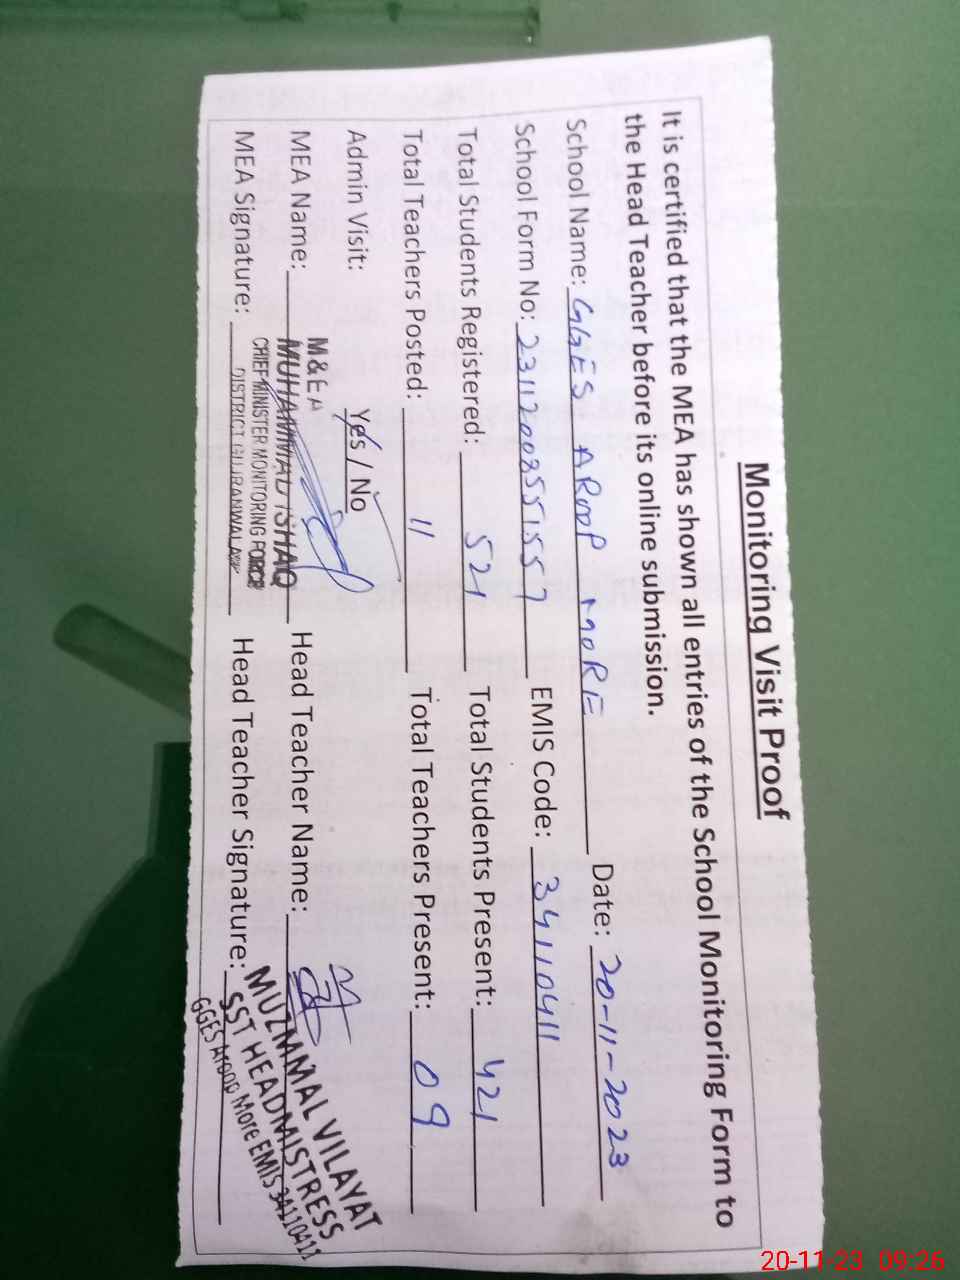 Monitoring Visit Proof
It is certified that the MEA has shown all entries of the School Monitoring Form to
the Head Teacher before its online submission.
School Name: GGES AROOP MORE Date: 20-11-2023
School Form No: 23112003551557 EMIS Code: 34110411
Total Students Registered: 521 Total Students Present: 421
Total Teachers Posted: 11 Total Teachers Present: 09
Admin Visit: Yes / No
M&EA
MEA Name: MUHAMMAD ISHAQ Head Teacher Name:
CHIEF MINISTER MONITORING FORCE
MEA Signature: DISTRICT GUJRANWALA Head Teacher Signature:
MUZMMAL VILAYAT
SST HEADMISTRESS
GGES Aroop More EMIS 34110411
20-11-23 09:26